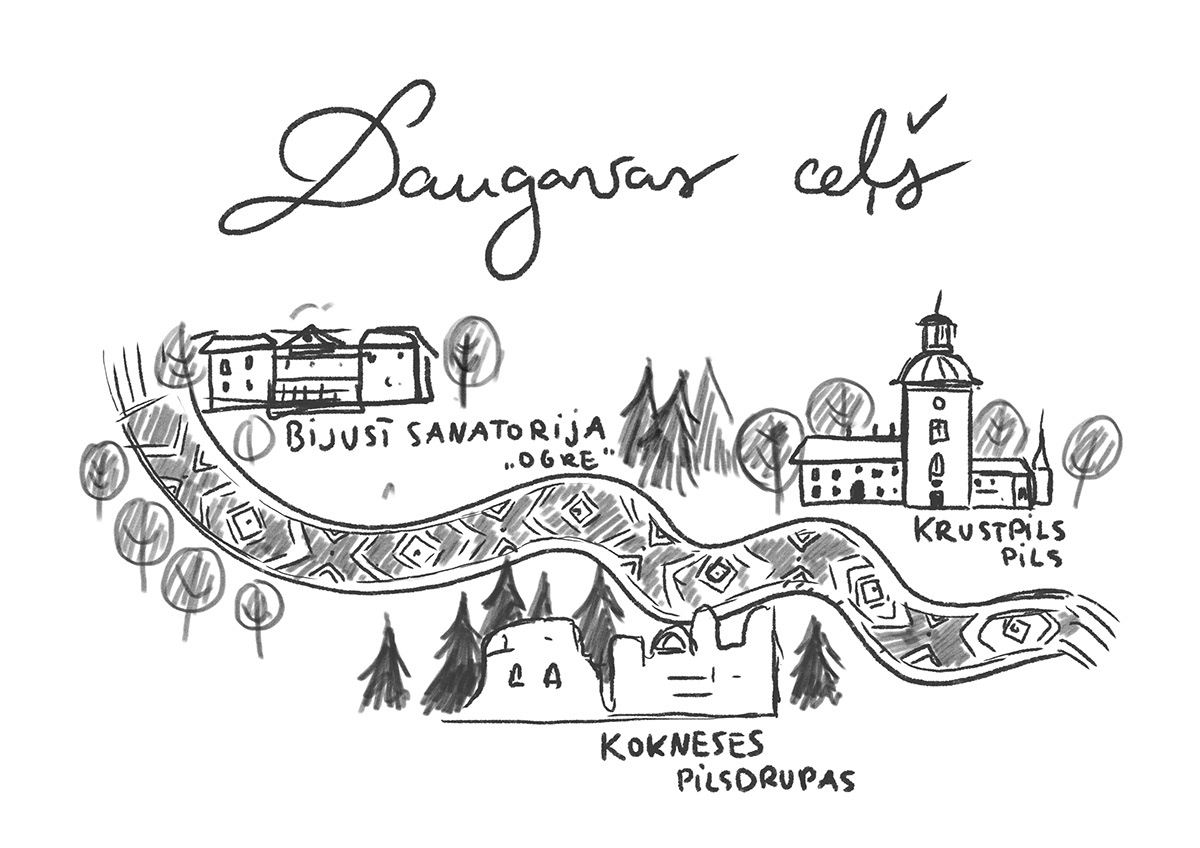 Daugavas ceļš
BIJUSĪ SANATORIJA
„OGRE"
KRUSTPILS
PILS
KOKNESES
PILSDRUPAS